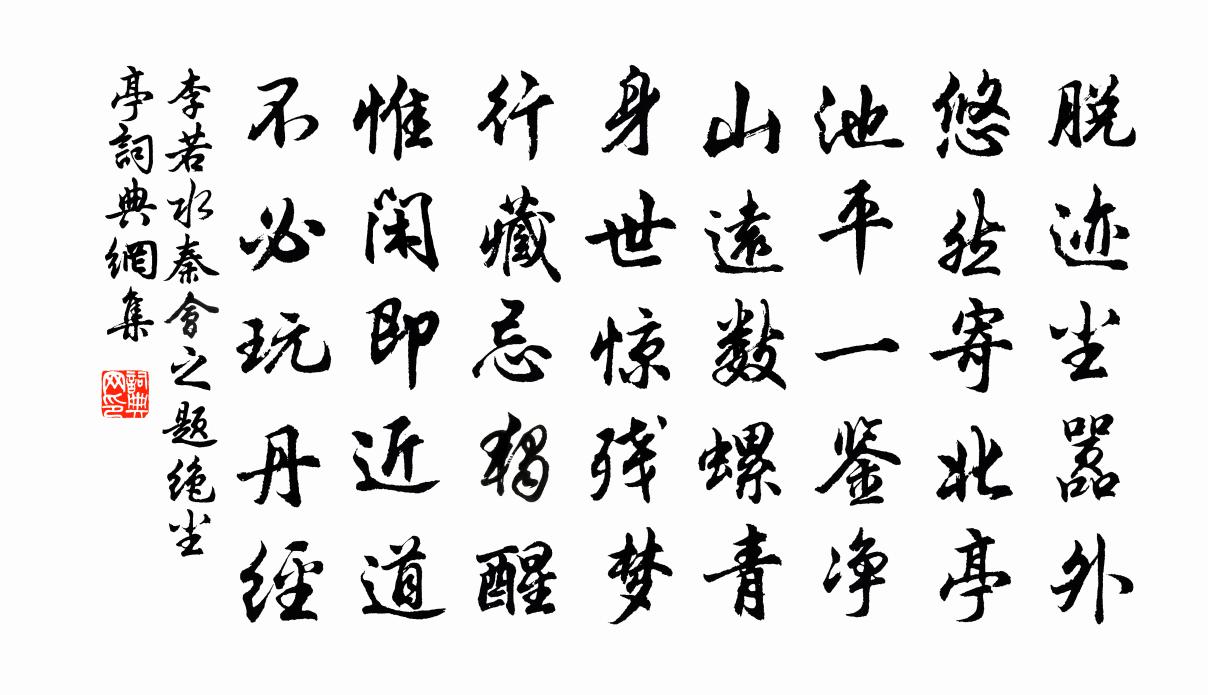 脱迹尘嚣外
悠然寄北亭
池平一鉴净
山遠数螺青
身世惊残梦
行藏忌独醒
惟闲即近道
不必玩丹經
李若水秦會之题绝尘
亭詞典網集
詞典
网印